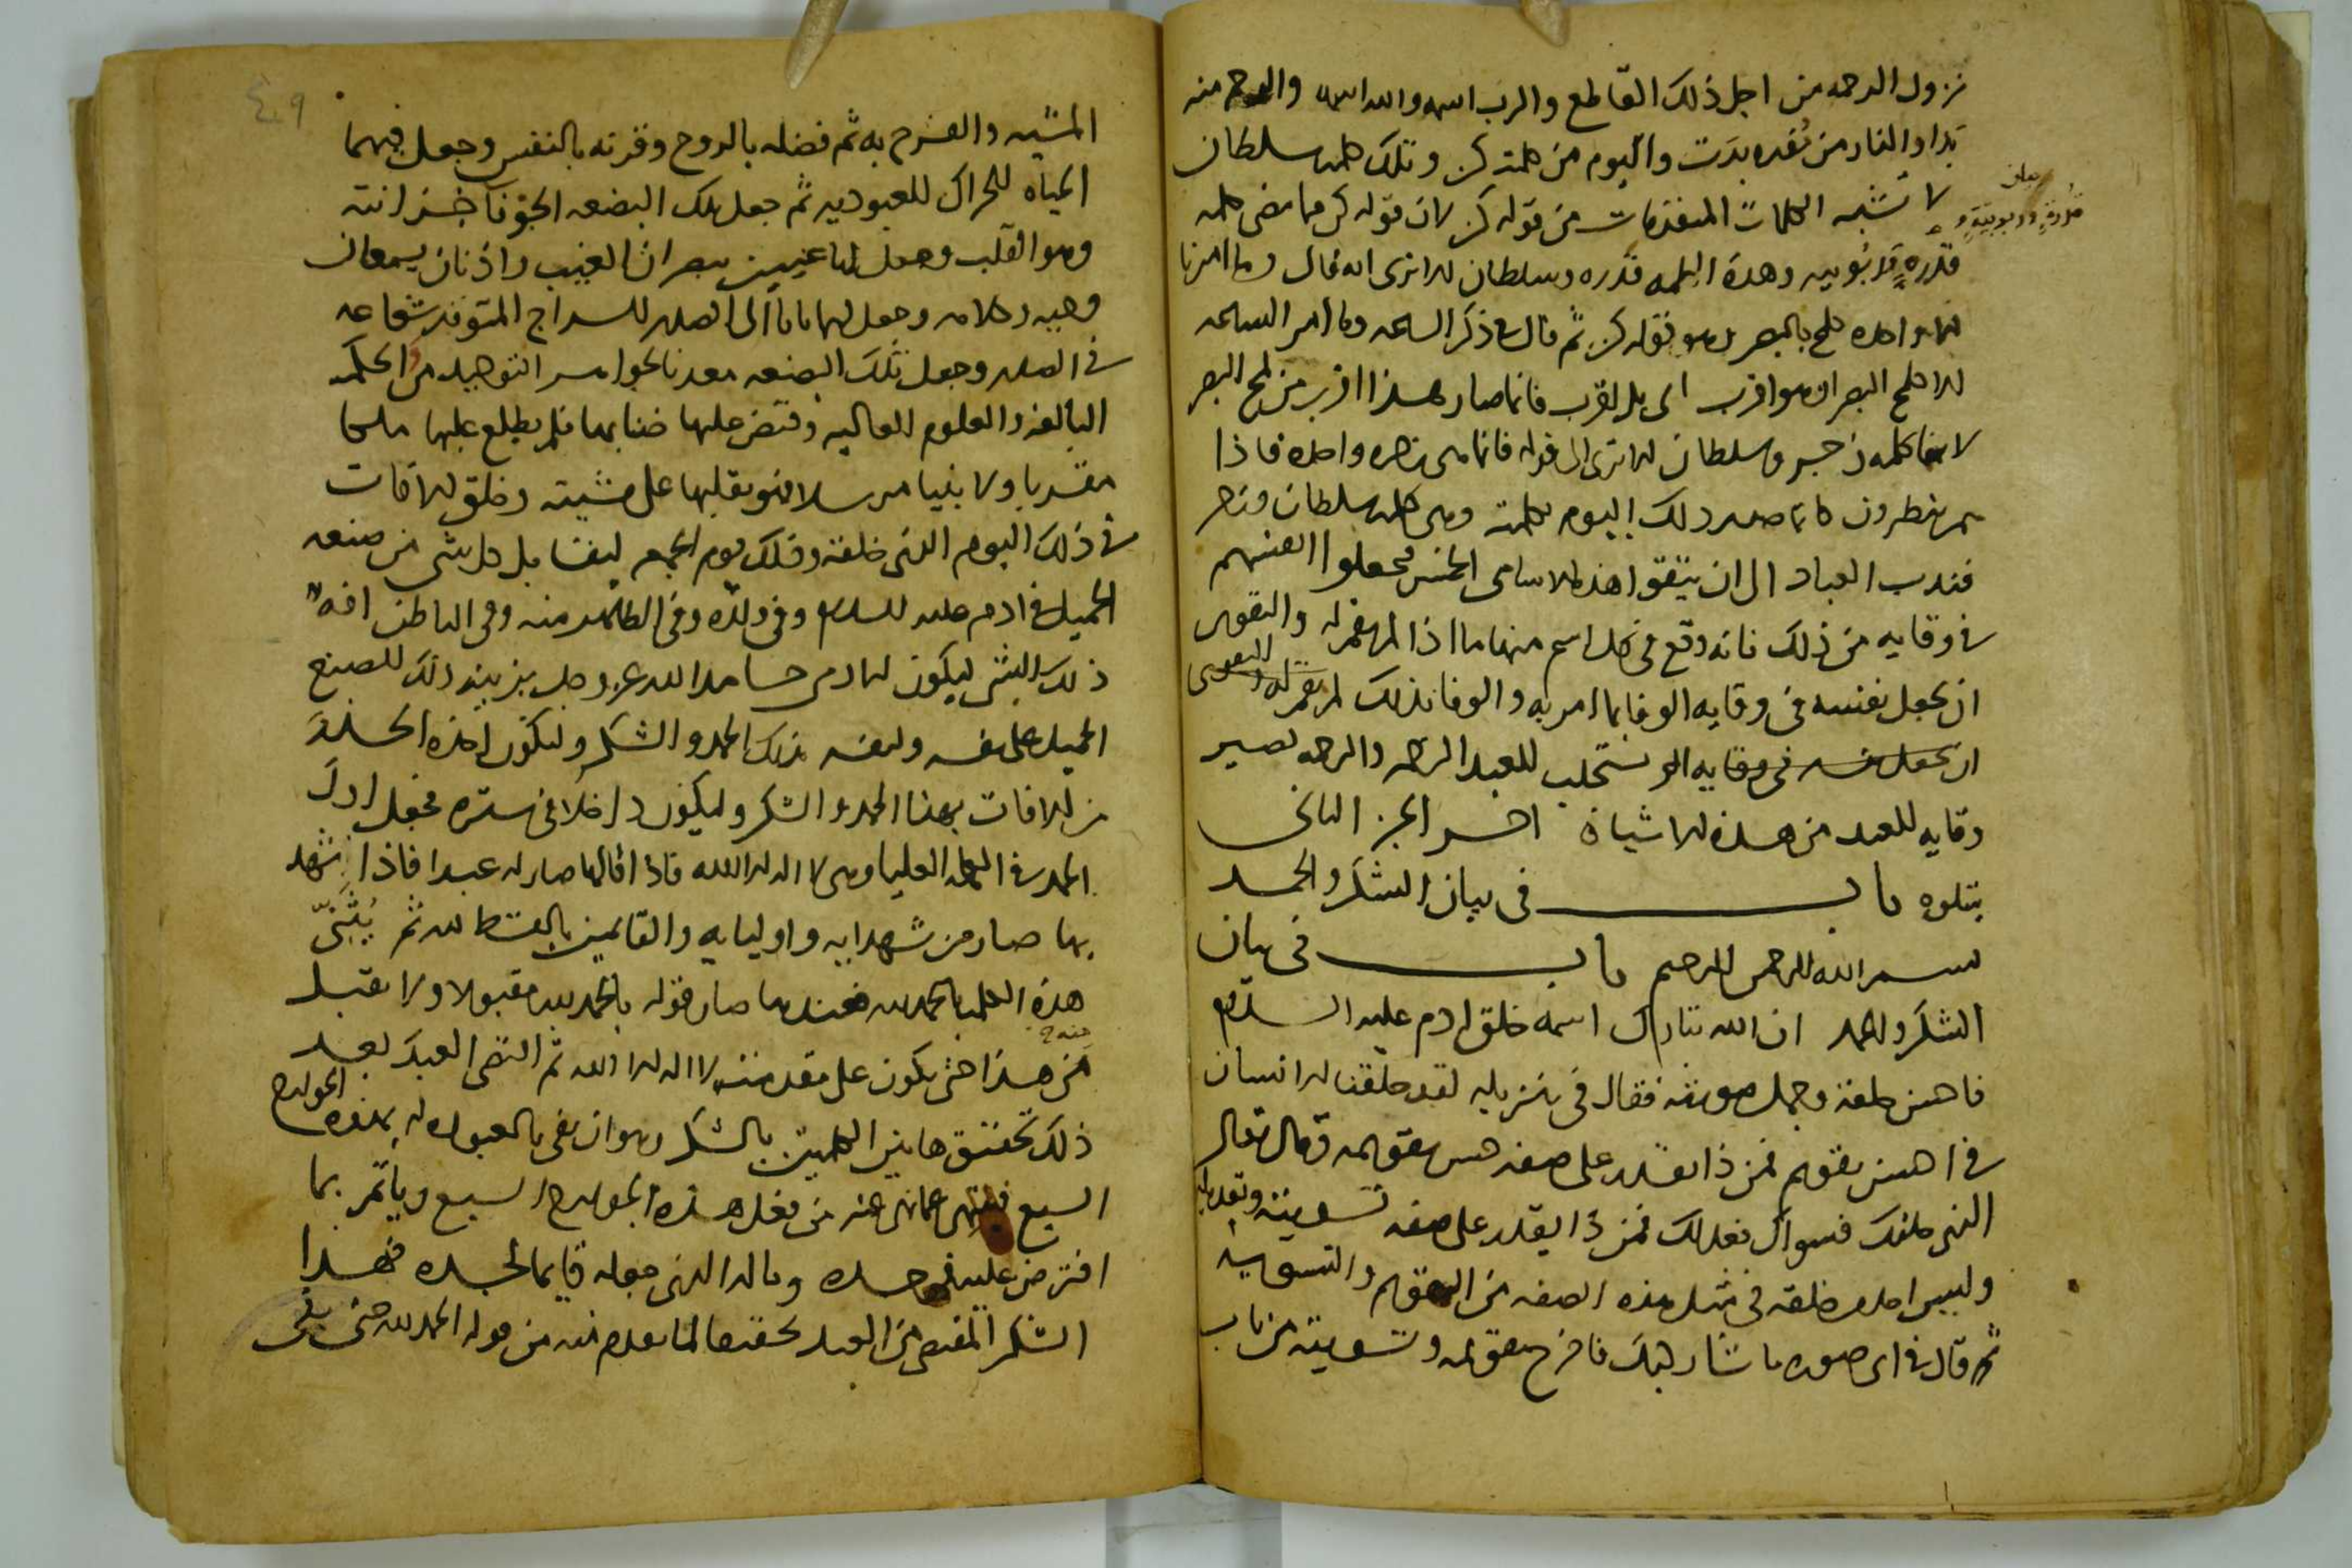 نزول الرحمه من اجل ذلك القاطع والرب اسمه والله اسمه والرحم منه
بدا والنار من بعده بدت واليوم من كلمته كن وتلك كلمه سلطان
لا تشبه الكلمات المتقدمات من قوله كن لان قوله كن فيما مضى كلمه
بيان
قدره وربوبية و
قدره وربوبيه وهذه الكلمه قدره وسلطان الا ترى انه قال وما امرنا
الا واحده كلمح بالبصر وهو قوله كن ثم قال في ذكر الساعه وما امر الساعه
الا كلمح البصر او هو اقرب اى بل اقرب فانما صار هذا اقرب من لمح البصر
لانها كلمه زجر وسلطان الا ترى الى قوله فانما هى زجره واحده فاذا
هم ينظرون فانما صدر ذلك اليوم بكلمته وهى كلمه سلطان وزجر
فندب العباد الى ان يتقوا هذه الاسامى الخمس فيجعلوا انفسهم
في وقايه من ذلك فانه وقع في كل اسم منها ما اذا لم يغفر له والتقوى
ان يجعل نفسه في وقايه الوفا بما امر به والوفا بذلك لم يغفر له والتقوى
ان يجعل نفسه في وقايه الو تستجلب للعبد الرحمه والرحمه تصير
وقايه للعبد من هذه الاشياء اخر الجز الثانى
يتلوه باب في بيان الشكر والحمد
بسم الله الرحمن الرحيم باب في بيان
الشكر والحمد ان الله تبارك اسمه خلق ادم عليه السلام
فاحسن خلقه وجمل صورته فقال في تنزيله لقد خلقنا الانسان
في احسن تقويم فمن ذا يقدر على صفه حسن تقويمه وقال تعالى
الذى خلقك فسواك فعدلك فمن ذا يقدر على صفه تسويته وتعديله
وليس احد من خلقه في مثل هذه الصفه من التقويم والتسويه
ثم قال في اى صوره ما شا ركبك فاخرج تقويمه وتسويته من باب
٤٩
المشيه والفرح به ثم فضله بالروح وقرنه بالنفس وجعل فيهما
الحياه للحراك للعبوديه ثم جعل تلك البضعه الجوفا خزانته
وهو القلب وجعل لها عينين يبصران الغيب واذنان يسمعان
وحيه وكلامه وجعل لها بابا الى الصدر للسراج المتوقد شعاعه
في الصدر وجعل تلك البضعه معدنا لجواهر التوحيد والحكمه
البالغه والعلوم العاليه وقبض عليها ضنا بها فلم يطلع عليها ملكا
مقربا ولا نبيا مرسلا فهو يقلبها على مشيته وخلق الاقات
في ذلك اليوم الذى خلقه وذلك يوم الجمعه ليقابل كل شى من صنعه
الجميل في ادم عليه السلام وفى ولده وفى الظاهر منه وفى الباطن افه
ذلك الشى ليكون الادمى حامدا لله عز وجل بزينه ذلك الصنع
الجميل على نفسه ولنفسه بذلك الحمد والشكر وليكون احذه الحذر
من الافات بهذا الحمد والشكر وليكون داخلا في ستره فجعل اول
الحمد في الكلمه العليا وهى لا اله الا الله فاذا قالها صار له عبدا فاذا شهد
بها صار من شهدايه واوليايه والقايمين بالقسط لله ثم يُثَنّى
هذه الكلمه بالحمد لله فعندها صار قوله بالحمد لله مقبولا ولا يقبل
منه
من هذا حتى يكون على مقدمته لا اله الا الله ثم اقتضى العبد بعد
ذلك تحقيق هاتين الكلمتين بالشكر وهو ان يفى بالعبوده له بهذه الجوارح
السبع فينتهى عما نهى عنه من فعل هذه الجوارح السبع وياتمر بما
افترض عليه في جسده وماله الذى جعله قايما لجسده فهذا
الشكر المقتضى من العبد تحقيقا لما تقدم منه من قوله الحمد لله حتى يفى